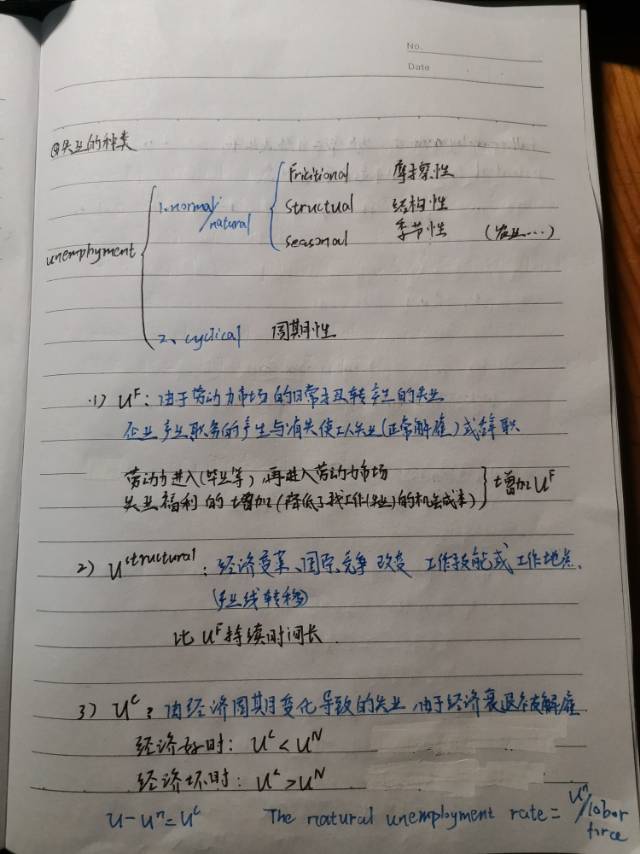 No.
Date
④失业的种类
unemphyment
1. normal/natural
Fricitional 摩擦性
Structual 结构性
Seasonal 季节性 (农业…)
2、cyclical 周期性
1) U^F: 由于劳动力市场的日常运转产生的失业
企业产业职务的产生与消失使工人失业(正常解雇)或辞职
劳动力进入(毕业等), 再进入劳动力市场
失业福利的增加(降低了找工作(失业)的机会成本)
} 增加U^F
2) U^structural: 经济变革、国际竞争 改变 工作技能或工作地点.
(产业线转移)
比U^F持续时间长
3) U^c: 由经济周期变化导致的失业, 由于经济衰退 被解雇
经济好时: U^c < U^N
经济坏时: U^c > U^N
U - U^n = U^c The natural unemployment rate = U^n/labor force